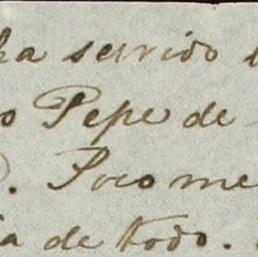 ha servido
o Pepe de
. Poco me
a de todo.